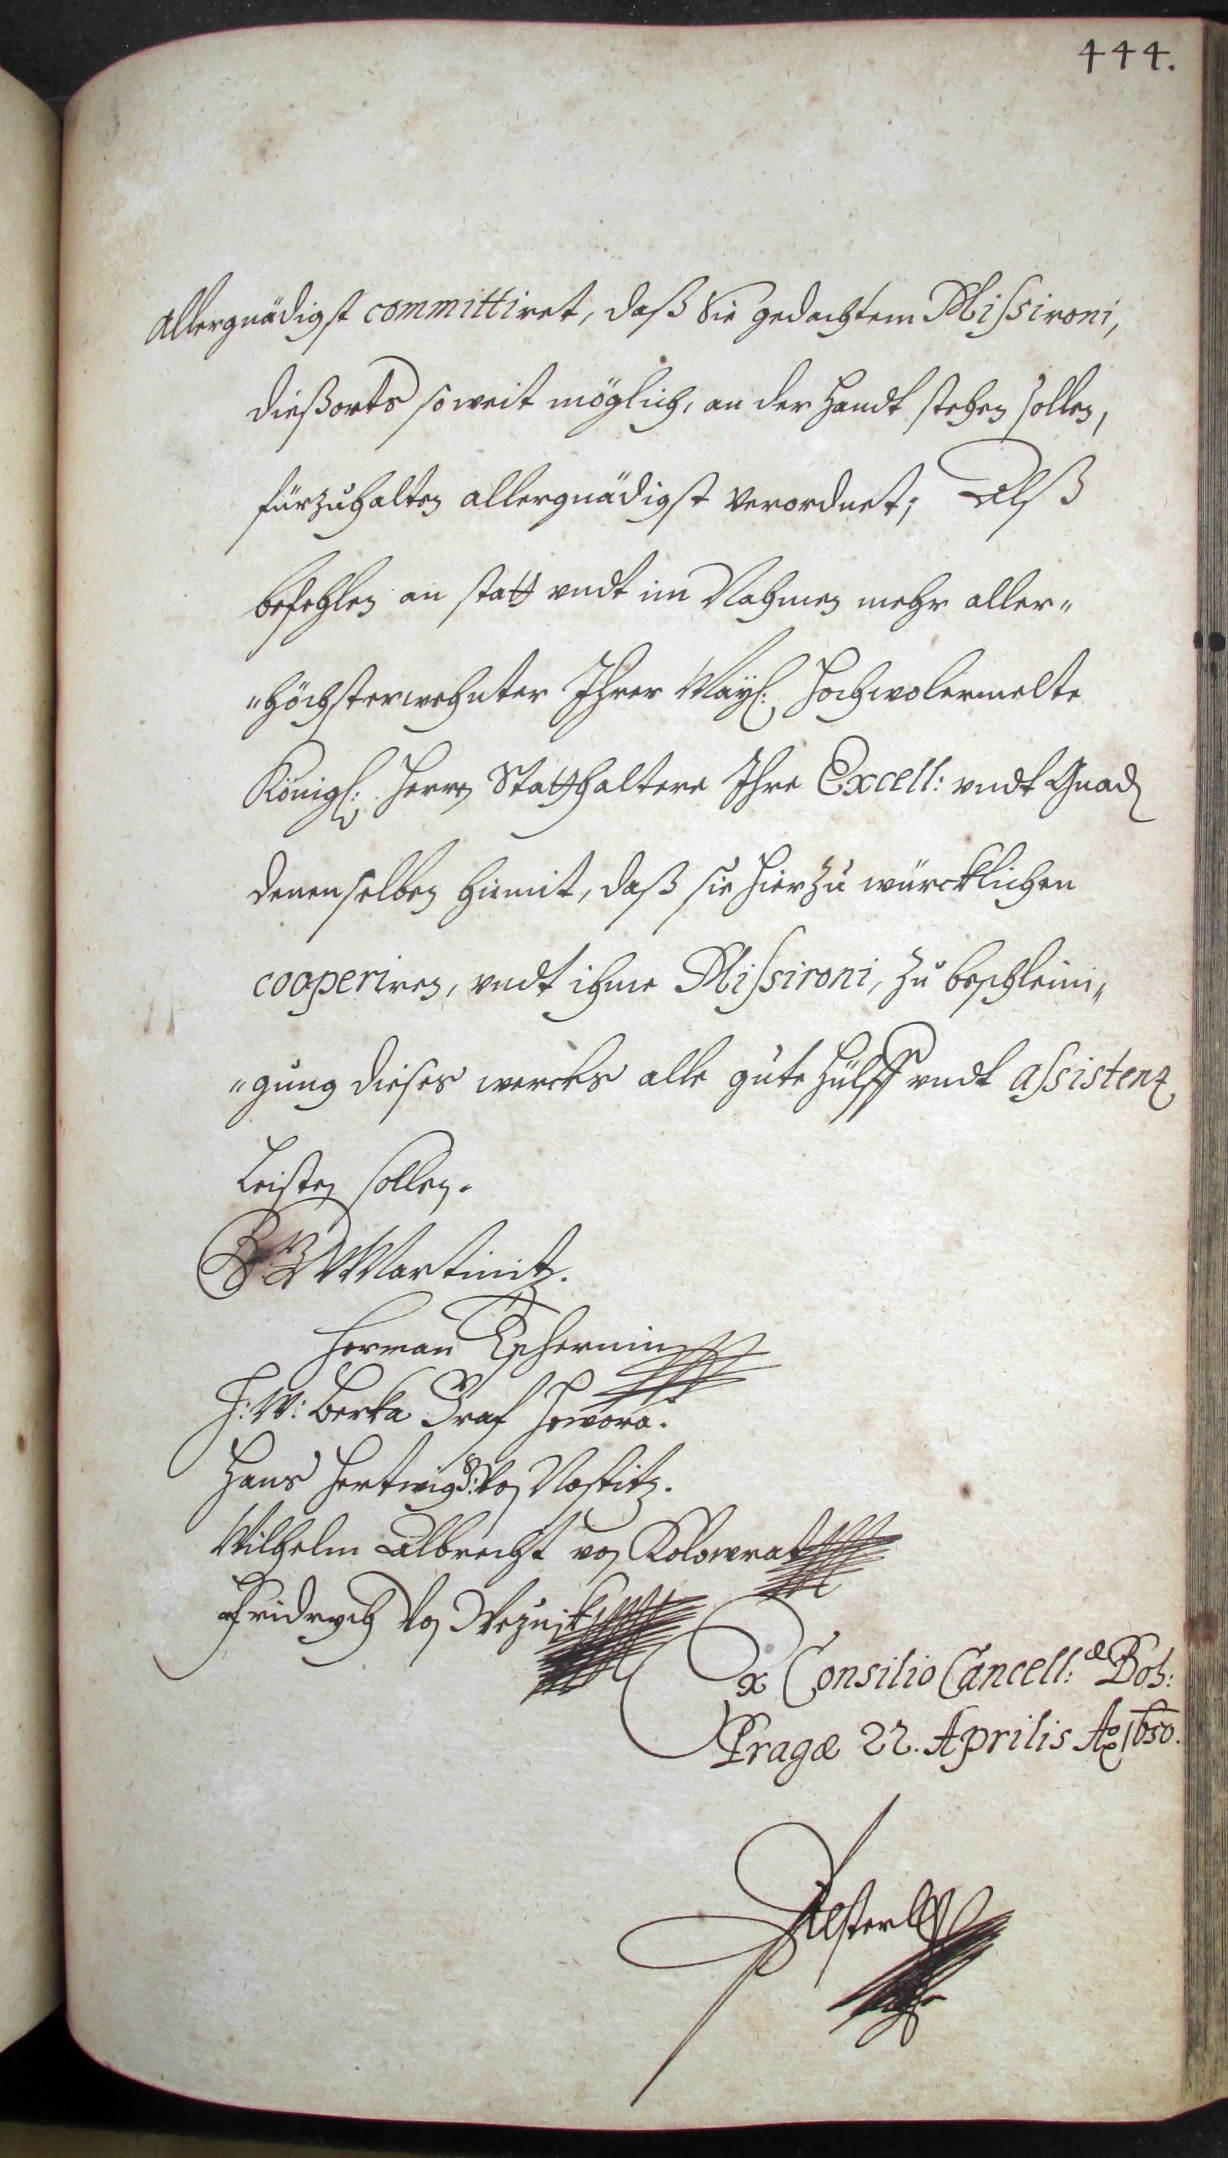 444.
Allergnädigst committiret, daß Sie gedachtem Mißironi,
dießorts so weit möglich, an der Handt stehen sollen,
fürzuhalten allergnädigst verordnet; Alß
befehlen an statt undt im Nahmen mehr aller„
„höchsterwehnter Ihrer Mayl: Hochwolermelte
Königl: Herrn Statthaltere Ihre Excell: undt Gnad
denenselben hiemit, daß sie hierzu würcklichen
cooperiren, undt ihme Mißironi, zu beschleini„
„gung dieses wercks alle gute Hülff undt assistenz
Leisten sollen.
B Z Martinitz.
Herman Tschernin
H: W: Berka Graf Howora.
Hans Hertwig G: von Nostitz.
Wilhelm Albrecht von Kolowrat
Fridrych von
Ex Consilio Cancell:æ Boh:
Pragæ 22. Aprilis Ao 1650.